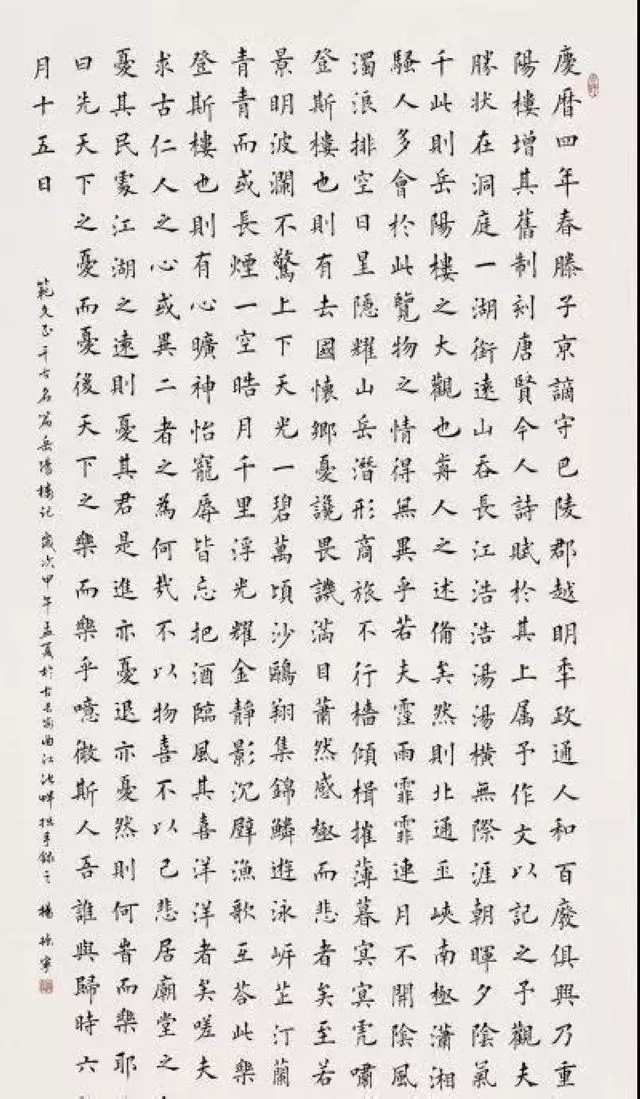 慶曆四年春滕子京謫守巴陵郡越明秊政通人和百廢俱興乃重
陽樓增其舊制刻唐賢今人詩賦於其上属予作文以記之予觀夫
勝状在洞庭一湖銜遠山吞長江浩浩湯湯橫無際涯朝暉夕陰氣
千此則岳陽樓之大觀也歬人之述俻矣然則北通巫峽南極瀟湘
騷人多會於此覽物之情得無異乎若夫霪雨霏霏連月不開陰風
濁浪排空日星隱耀山岳潛形商旅不行檣傾楫摧薄暮冥冥虎嘯
登斯樓也則有去國懷鄉憂讒畏譏滿目蕭然感極而悲者矣至若
景明波瀾不驚上下天光一碧萬頃沙鷗翔集錦鱗遊泳岍芷汀蘭
青青而或長煙一空皓月千里浮光耀金靜影沉璧漁歌互荅此樂
登斯樓也則有心曠神怡寵辱皆忘把酒臨風其喜洋洋者矣嗟夫
求古仁人之心或異二者之為何哉不以物喜不以己悲居廟堂之
憂其民處江湖之遠則憂其君是進亦憂退亦憂然則何旹而樂耶
曰先天下之憂而憂後天下之樂而樂乎噫微斯人吾誰與歸時六
月十五日
範文正千古名篇岳陽樓記歲次甲午孟夏於古長安曲江池畔拙手錄之楊寧